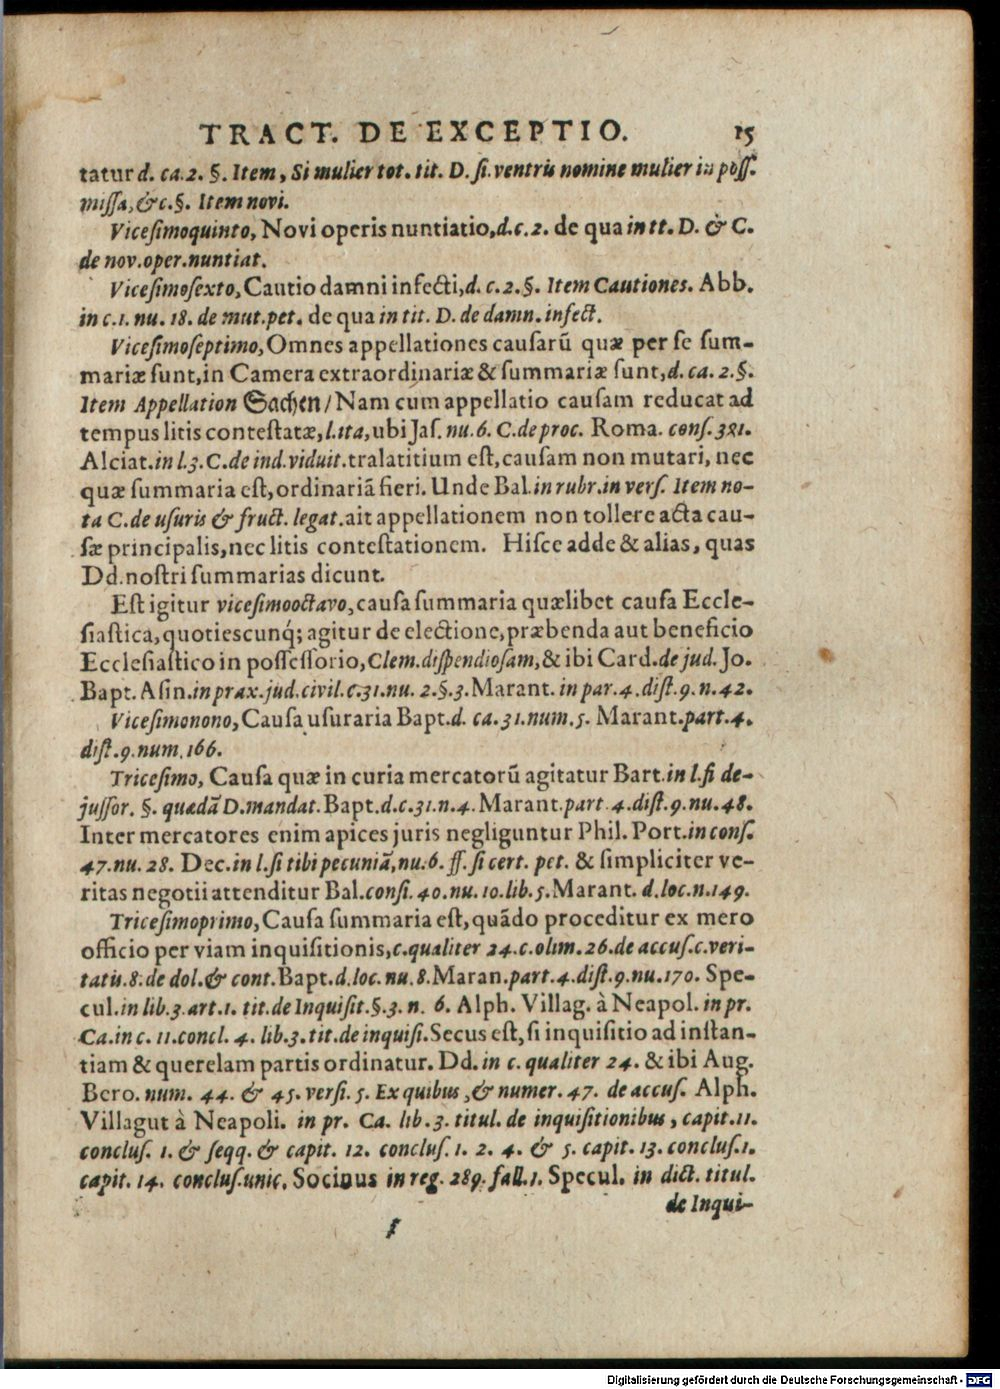 TRACT. DE EXCEPTIO. 15
tatur d. ca. 2. §. Item, Si mulier tot. tit. D. si. ventris nomine mulier in poss.
missa, &c. §. Item novi.
Vicesimoquinto, Novi operis nuntiatio, d. c. 2. de qua in tt. D. & C.
de nov. oper. nuntiat.
Vicesimosexto, Cautio damni infecti, d. c. 2. §. Item Cautiones. Abb.
in c. 1. nu. 18. de mut. pet. de qua in tit. D. de damn. infect.
Vicesimoseptimo, Omnes appellationes causarū quæ per se sum-
mariæ sunt, in Camera extraordinariæ & summariæ sunt, d. ca. 2. §.
Item Appellation Sachen / Nam cum appellatio causam reducat ad
tempus litis contestatæ, l. ita, ubi Jas. nu. 6. C. de proc. Roma. cons. 381.
Alciat. in l. 3. C. de ind. viduit. tralatitium est, causam non mutari, nec
quæ summaria est, ordinariā fieri. Unde Bal. in rubr. in vers. Item no-
ta C. de usuris & fruct. legat. ait appellationem non tollere acta cau-
sæ principalis, nec litis contestationem. Hisce adde & alias, quas
Dd. nostri summarias dicunt.
Est igitur vicesimooctavo, causa summaria quælibet causa Eccle-
siastica, quotiescunq́; agitur de electione, præbenda aut beneficio
Ecclesiastico in possessorio, Clem. dispendiosam, & ibi Card. de jud. Jo.
Bapt. Asin. in prax. jud. civil. c. 31. nu. 2. §. 3. Marant. in par. 4. dist. 9. n. 42.
Vicesimonono, Causa usuraria Bapt. d. ca. 31. num. 5. Marant. part. 4.
dist. 9. num. 166.
Tricesimo, Causa quæ in curia mercatorū agitatur Bart. in l. fi de-
jussor. §. quædā D. mandat. Bapt. d. c. 31. n. 4. Marant. part. 4. dist. 9. nu. 48.
Inter mercatores enim apices juris negliguntur Phil. Port. in cons.
47. nu. 28. Dec. in l. si tibi pecuniā, nu. 6. ff. si cert. pet. & simpliciter ve-
ritas negotii attenditur Bal. consi. 40. nu. 10. lib. 5. Marant. d. loc. n. 149.
Tricesimoprimo, Causa summaria est, quādo proceditur ex mero
officio per viam inquisitionis, c. qualiter 24. c. olim. 26. de accus. c. veri-
tatis. 8. de dol. & cont. Bapt. d. loc. nu. 8. Maran. part. 4. dist. 9. nu. 170. Spe-
cul. in lib. 3. art. 1. tit. de Inquisit. §. 3. n. 6. Alph. Villag. à Neapol. in pr.
Ca. in c. 11. concl. 4. lib. 3. tit. de inquisi. Secus est, si inquisitio ad instan-
tiam & querelam partis ordinatur. Dd. in c. qualiter 24. & ibi Aug.
Bero. num. 44. & 45. versi. 5. Ex quibus, & numer. 47. de accus. Alph.
Villagut à Neapoli. in pr. Ca. lib. 3. titul. de inquisitionibus, capit. 11.
conclus. 1. & seqq. & capit. 12. conclus. 1. 2. 4. & 5. capit. 13. conclus. 1.
capit. 14. conclus. unic. Socinus in reg. 289. fall. 1. Specul. in dict. titul.
de Inqui-
f
Digitalisierung gefördert durch die Deutsche Forschungsgemeinschaft - DFG